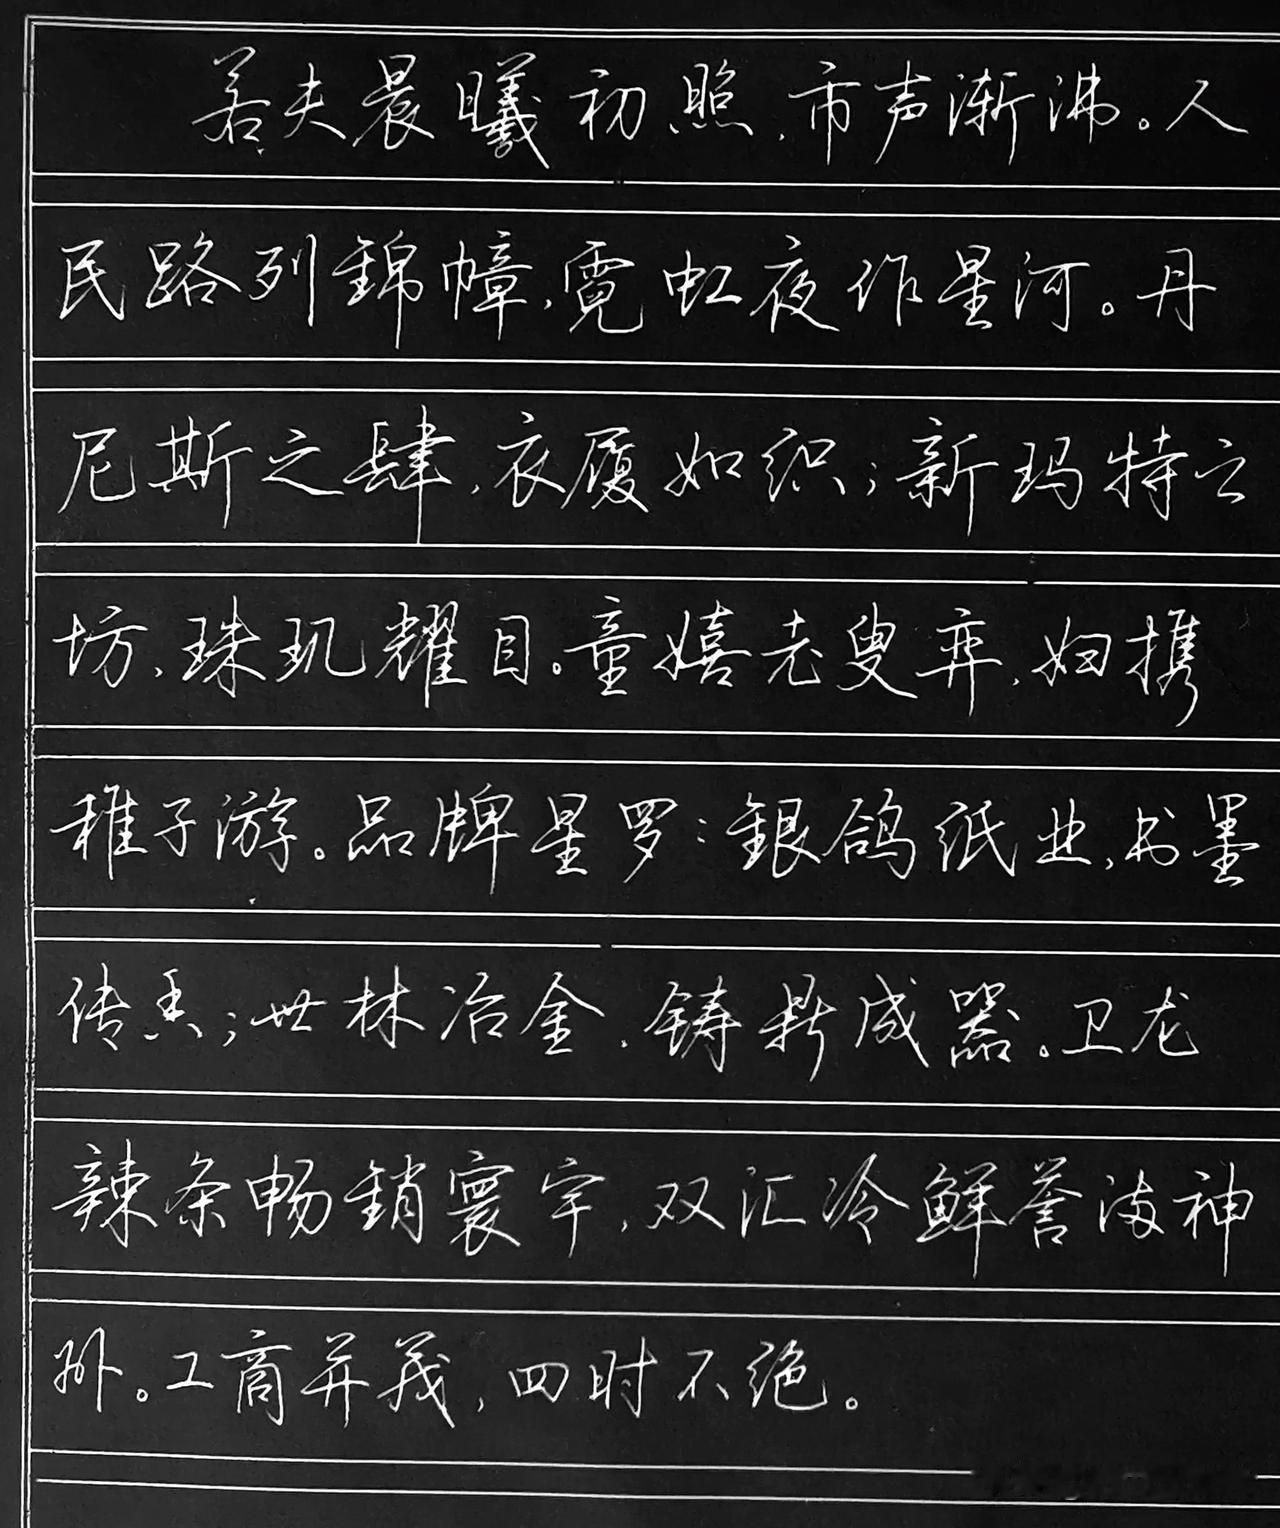 若夫晨曦初照,市声渐沸。人
民路列錦幛,霓虹夜作星河。丹
尼斯之肆,衣履如织;新玛特之
坊,珠玑耀目。童嬉老叟弈,妇携
稚子游。品牌星罗:銀鸽纸业,书墨
传香;世林冶金,铸鼎成器。卫龙
辣条畅銷寰宇,双汇冷鲜誉满神
州。工商并茂,四时不绝。